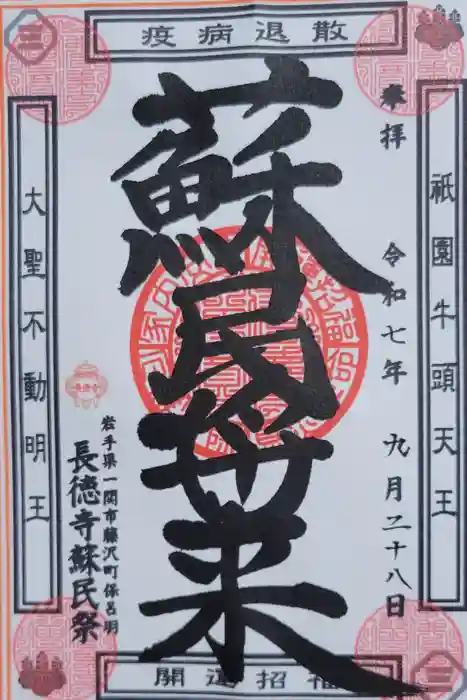 疫病退散
祇園牛頭天王
奉拝 令和七年 九月二十八日
蘇民将来
岩手県一関市藤沢町保呂羽
長徳寺蘇民祭
大聖不動明王
開運招福